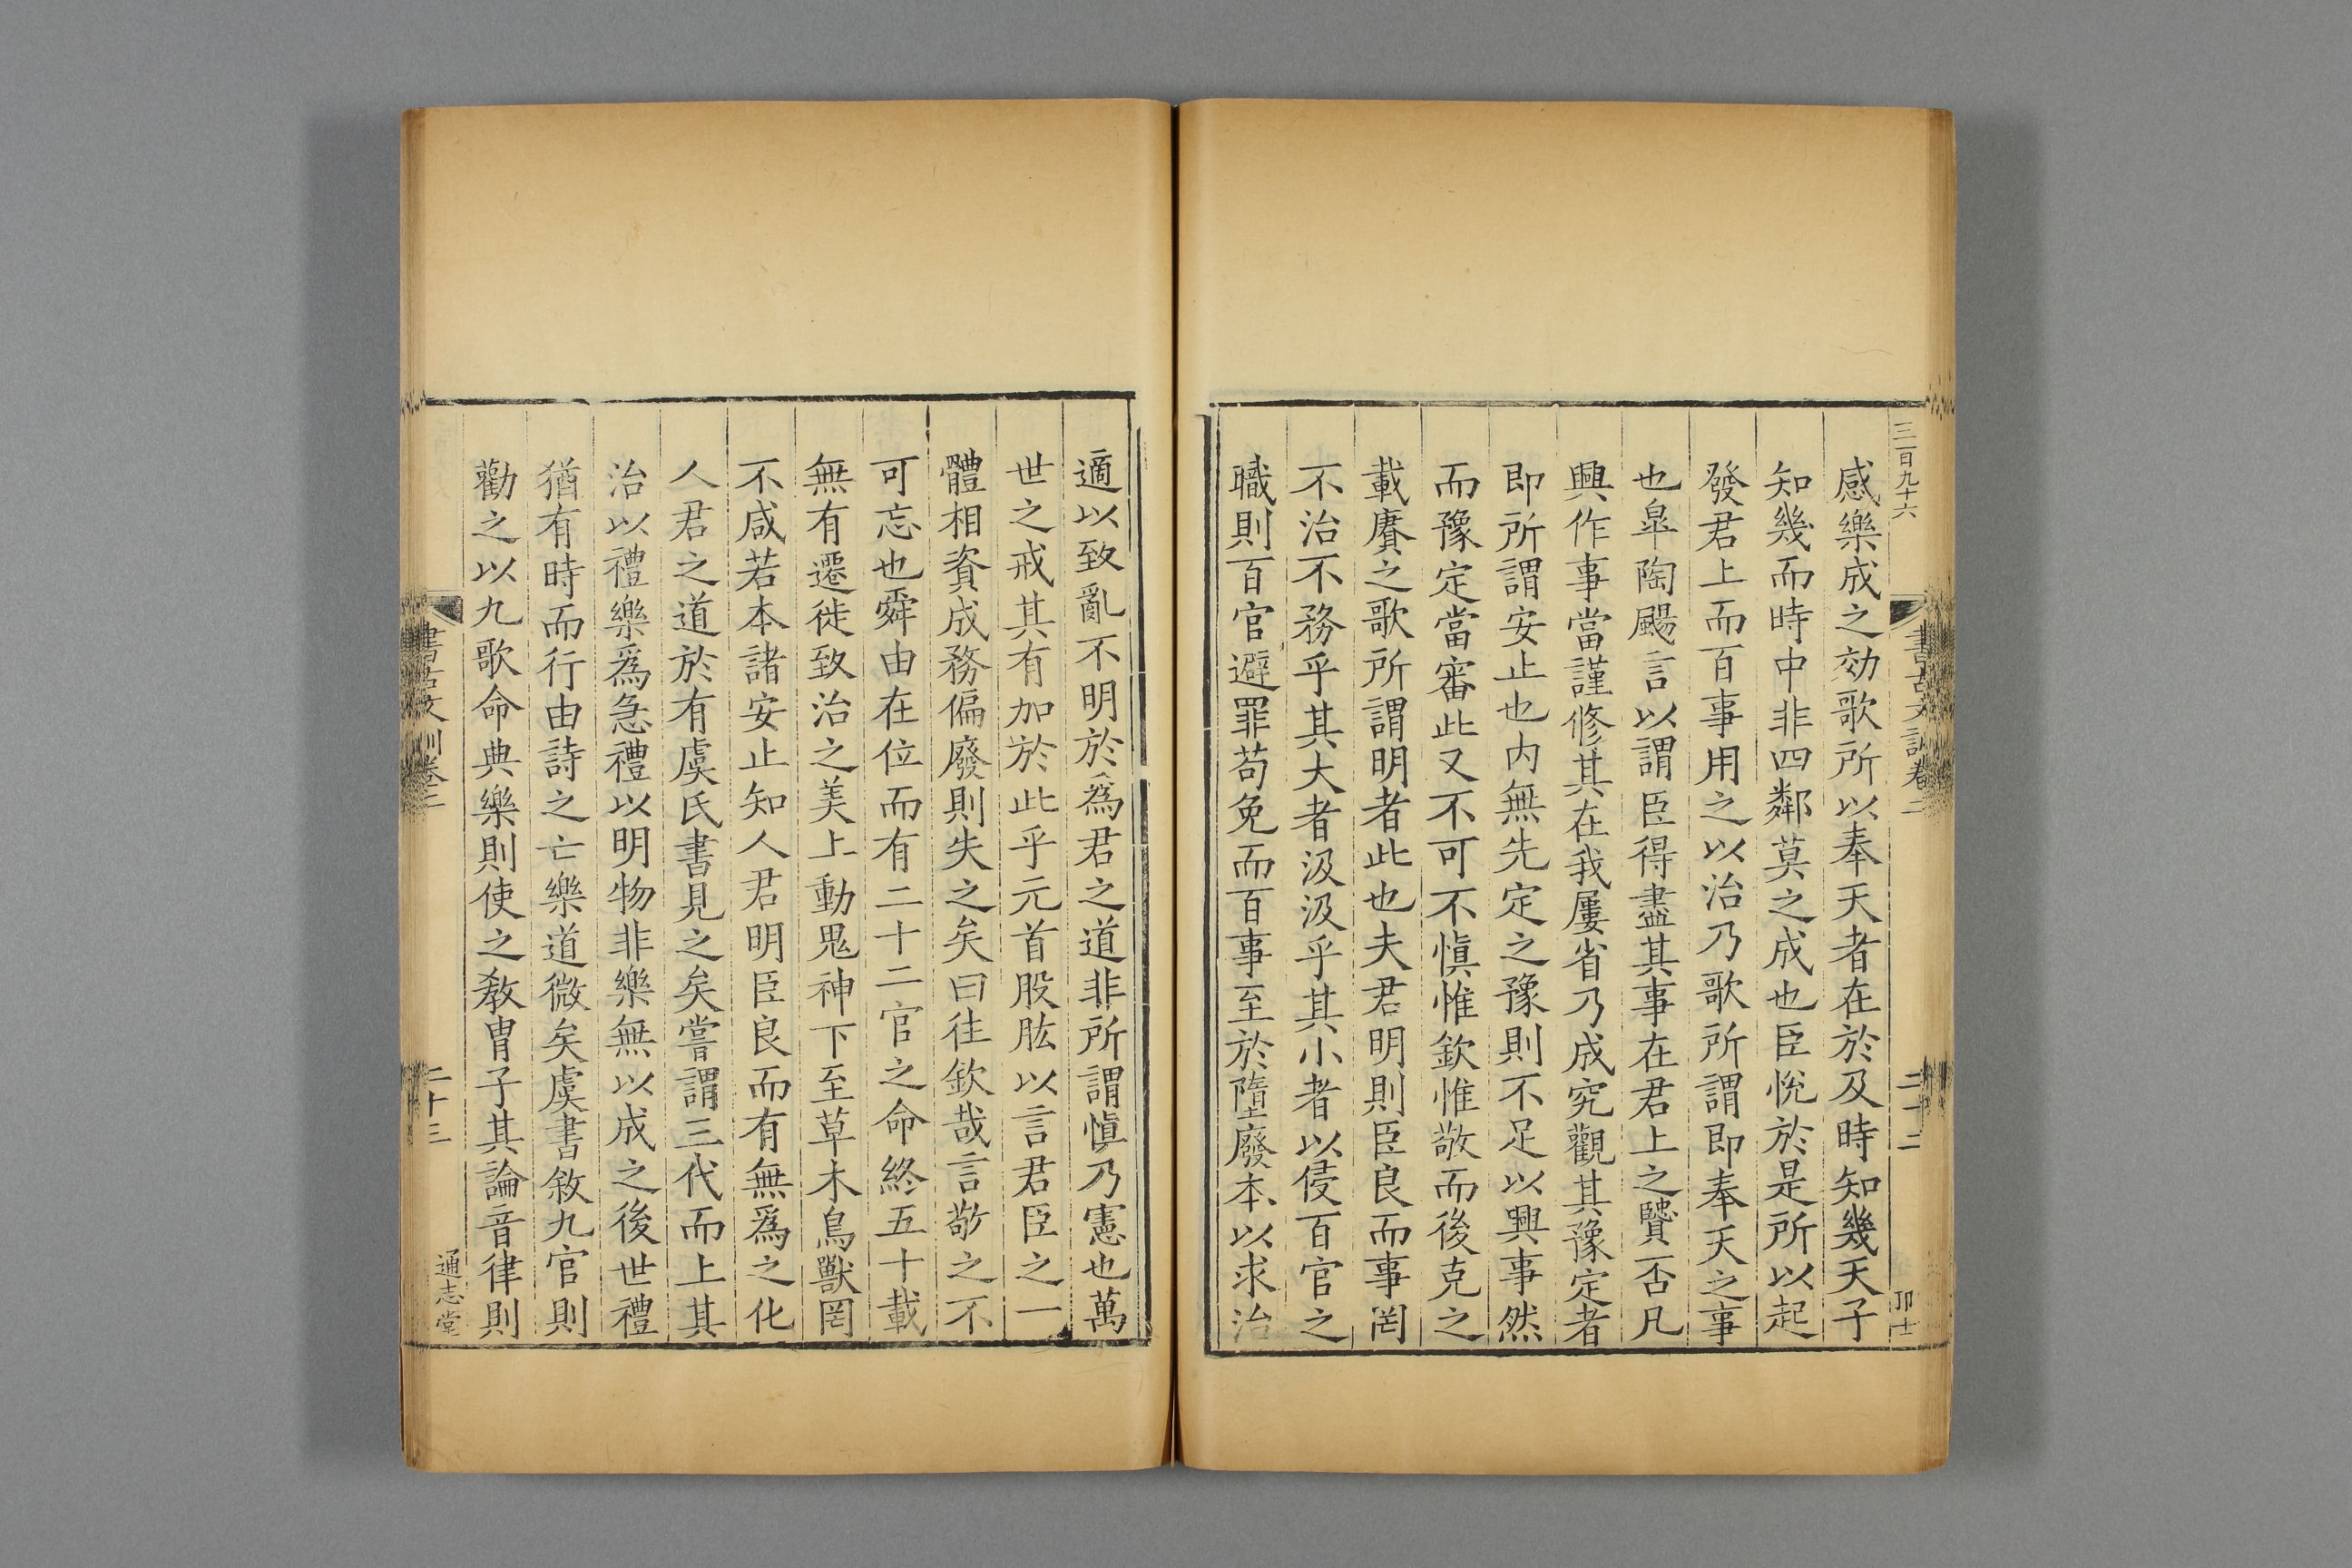 三百九十六
書古文訓卷二
二十二
卬士
感樂成之効歌所以奉天者在於及時知幾天子
知幾而時中非四鄰莫之成也臣悅於是所以起
發君上而百事用之以治乃歌所謂即奉天之事
也臯陶颺言以謂臣得盡其事在君上之賢否凡
興作事當謹修其在我屢省乃成究觀其豫定者
即所謂安止也内無先定之豫則不足以興事然
而豫定當審此又不可不愼惟欽惟敬而後克之
載賡之歌所謂明者此也夫君明則臣良而事罔
不治不務乎其大者汲汲乎其小者以侵百官之
職則百官避罪苟免而百事至於墮廢本以求治
適以致亂不明於爲君之道非所謂愼乃憲也萬
世之戒其有加於此乎元首股肱以言君臣之一
體相資成務偏廢則失之矣曰往欽哉言敬之不
可忘也舜由在位而有二十二官之命終五十載
無有遷徙致治之美上動鬼神下至草木鳥獸罔
不咸若本諸安止知人君明臣良而有無爲之化
人君之道於有虞氏書見之矣嘗謂三代而上其
治以禮樂爲急禮以明物非樂無以成之後世禮
猶有時而行由詩之亡樂道微矣虞書敘九官則
勸之以九歌命典樂則使之敎胄子其論音律則
書古文訓卷二
二十三
通志堂